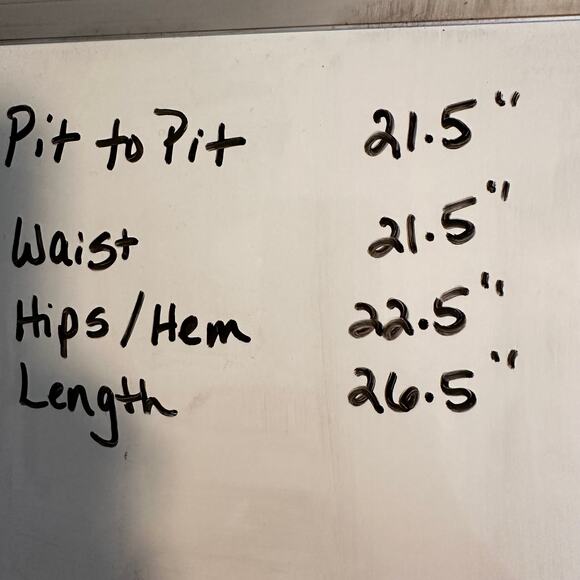 Pit to Pit 21.5"
Waist 21.5"
Hips/Hem 22.5"
Length 26.5"